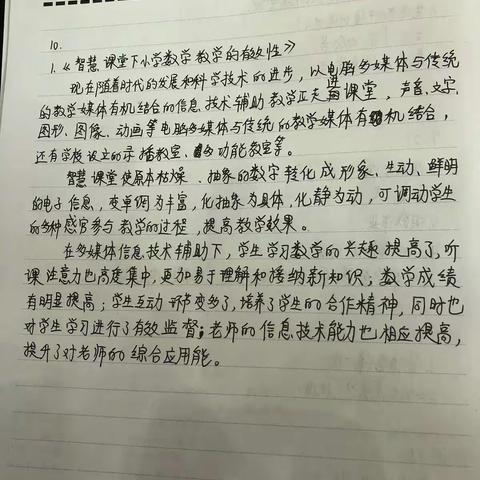 10.
1.《智慧课堂下小学数学教学的有效性》
现在随着时代的发展和科学技术的进步，以电脑多媒体与传统
的教学媒体有机结合的信息技术辅助教学正走进课堂，声音、文字、
图形、图像、动画等电脑多媒体与传统的教学媒体有机结合，
还有学校设立的录播教室、多功能教室等。
智慧课堂使原本枯燥、抽象的数字转化成形象、生动、鲜明
的电子信息，变单调为丰富，化抽象为具体，化静为动，可调动学生
的多种感官参与教学的过程，提高教学效果。
在多媒体信息技术辅助下，学生学习数学的兴趣提高了，听
课注意力也高度集中，更加易于理解和接纳新知识；数学成绩
有明显提高；学生互动环节变多了，培养了学生的合作精神，同时也
对学生学习进行了有效监督；老师的信息技术能力也相应提高，
提升了对老师的综合应用能。